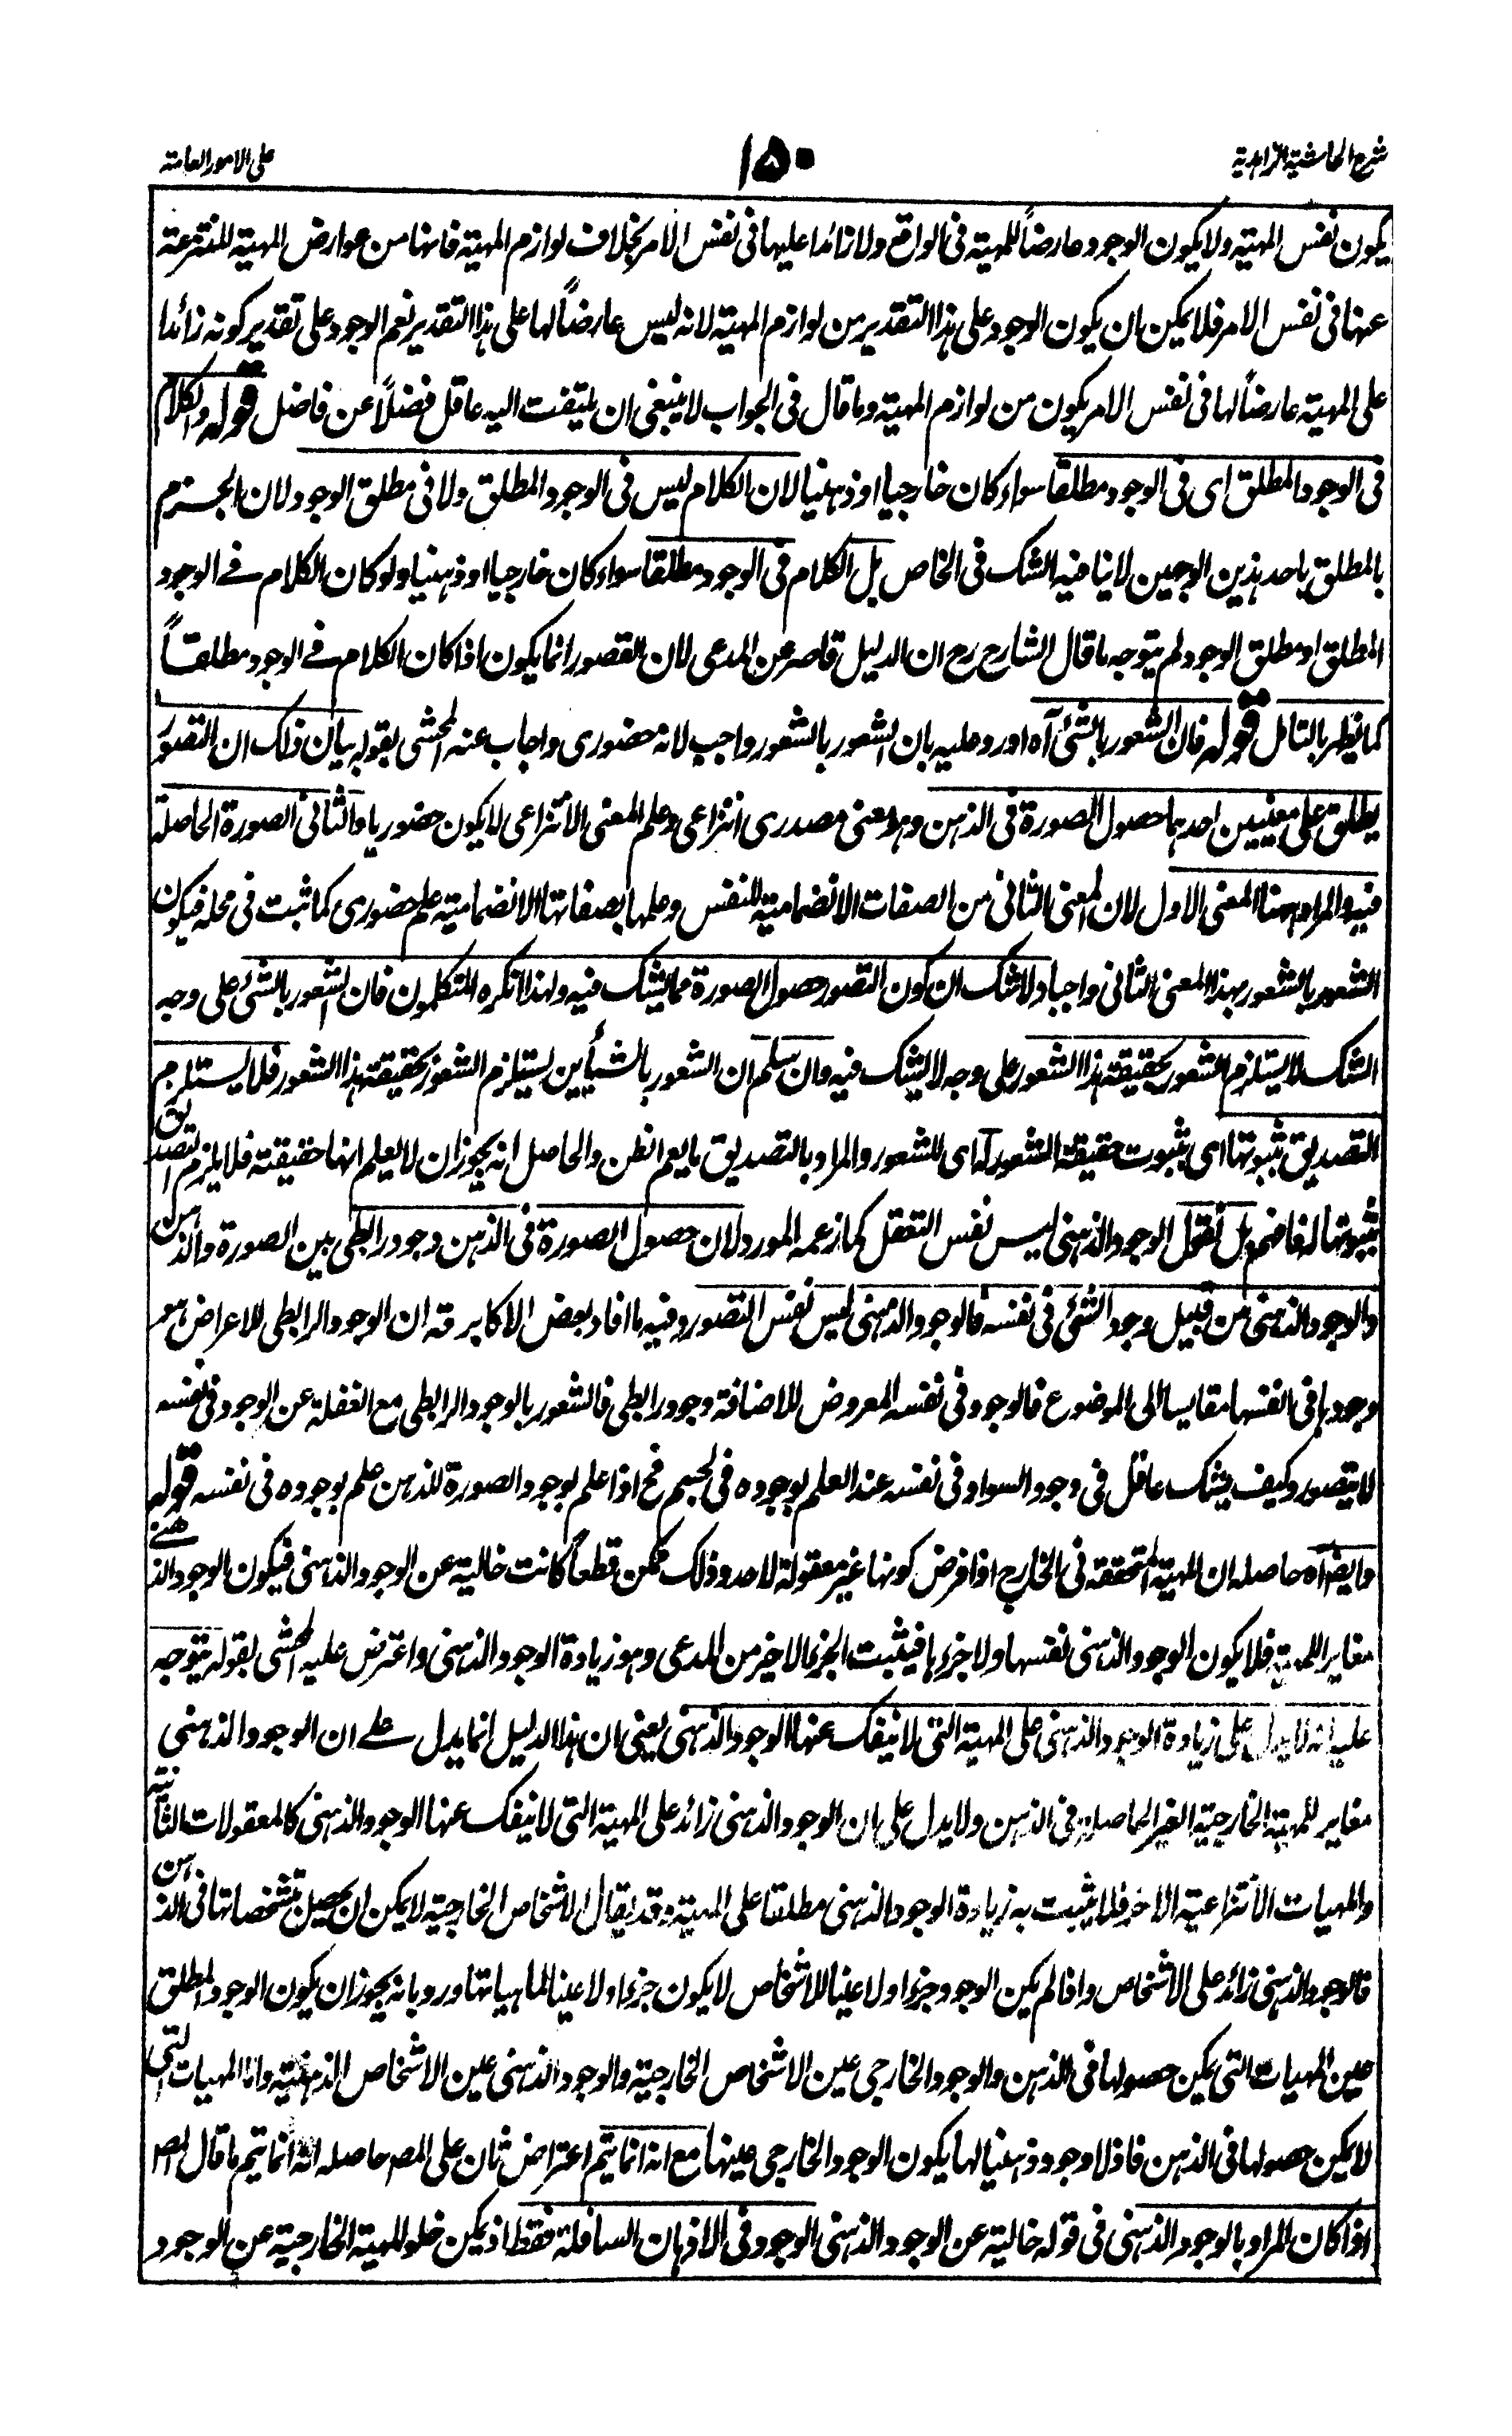 شرح الحاشية الزاهدية
١٥٠
على الامور العامة
يكون نفس المهية ولا يكون الوجود عارضاً للمهية فى الواقع ولا زائدا عليها فى نفس الامر بخلاف لوازم المهية فانها من عوارض المهية المنتزعة
عنها فى نفس الامر فلا يمكن ان يكون الوجود على هذا التقدير من لوازم المهية لانه ليس عارضاً لها على هذا التقدير نعم الوجود على تقدير كونه زائدا
على المهية عارضاً لها فى نفس الامر يكون من لوازم المهية وما قال فى الجواب لا ينبغى ان يلتفت اليه عاقل فضلاً عن فاضل قوله والكلام
فى الوجود المطلق اى فى الوجود مطلقا سواء كان خارجيا او ذهنيا لان الكلام ليس فى الوجود المطلق ولا فى مطلق الوجود لان الجزم
بالمطلق باحد هذين الوجهين لا ينافيه الشك فى الخاص بل الكلام فى الوجود مطلقا سواء كان خارجيا او ذهنيا ولو كان الكلام فے الوجود
المطلق او مطلق الوجود لم يتوجه ما قال الشارح رح ان الدليل قاصر عن المدعى لان القصور انما يكون اذا كان الكلام فے الوجود مطلقاً
كما يظهر بالتامل قوله فان الشعور بالشئ آه اورد عليه بان الشعور بالشعور واجب لانه حضورى واجاب عنه المحشى بقوله بيان ذلك ان التصور
يطلق على معنيين احدهما حصول الصورة فى الذهن وهو معنى مصدرى انتزاعى وعلم المعنى الانتزاعى لا يكون حضوريا والثانى الصورة الحاصلة
فيه والمراد ههنا المعنى الاول لان المعنى الثانى من الصفات الانضمامية للنفس وعلمها بصفاتها الانضمامية علم حضورى كما ثبت فى محله فيكون
الشعور بالشعور بهذا المعنى الثانى واجبا ولا شك ان كون التصور حصول الصورة مما يشك فيه ولهذا انكره المتكلمون فان الشعور بالشئ على وجه
الشك لا يستلزم الشعور بحقيقة هذا الشعور على وجه لا يشك فيه وان سلم ان الشعور بالشيأين يستلزم الشعور بحقيقة هذا الشعور فلا يستلزم
التصديق بثبوتها اى بثبوت حقيقة الشعور له اى للشعور والمراد بالتصديق ما يعم الظن والحاصل انه يجوز ان لا يعلم انها حقيقته فلا يلزم التصديق
بثبوتها له فافهم بل نقول الوجود الذهنى ليس نفس التعقل كما زعمه المورد لان حصول الصورة فى الذهن وجود رابطى بين الصورة والذهن
والوجود الذهنى من قبيل وجود الشئ فى نفسه فالوجود الذهنى ليس نفس التصور وفيه ما افاد بعض الاكابر قه ان الوجود الرابطى للاعراض هو
وجودها فى انفسها مقايسا الى الموضوع فالوجود فى نفسه المعروض للاضافة وجود رابطى فالشعور بالوجود الرابطى مع الغفلة عن الوجود فى نفسه
لا يتصور وكيف يشك عاقل فى وجود السواد فى نفسه عند العلم بوجوده فى الجسم فح اذا علم بوجود الصورة للذهن علم بوجوده فى نفسه قوله
وايضا آه حاصله ان المهية المتحققة فى الخارج اذا فرض كونها غير معقولة لاحد وذلك ممكن قطعاً كانت خالية عن الوجود الذهنى فيكون الوجود الذهنے
مغايرا للمهية فلا يكون الوجود الذهنى نفسها ولا جزءها فيثبت الجزء الاخير من المدعى وهو زيادة الوجود الذهنى واعترض عليه المحشى بقوله يتوجه
عليه انه لا يدل على زيادة الوجود الذهنى على المهية التى لا ينفك عنها الوجود الذهنى يعنى ان هذا الدليل انما يدل علے ان الوجود الذهنى
مغاير للمهية الخارجية الغير الحاصلة فى الذهن ولا يدل على ان الوجود الذهنى زائد على المهية التى لا ينفك عنها الوجود الذهنى كالمعقولات الثانية
والمهيات الانتزاعية الاخر فلا يثبت به زيادة الوجود الذهنى مطلقا على المهية وقد يقال الاشخاص الخارجية لا يمكن ان يحصل بتشخصاتها فى الذهن
فالوجود الذهنى زائد على الاشخاص واذا لم يكن الوجود جزءا ولا عينا للاشخاص لا يكون جزءا ولا عينا لماهياتها ورد بانه يجوز ان يكون الوجود المطلق
عين المهيات التى يمكن حصولها فى الذهن والوجود الخارجى عين الاشخاص الخارجية والوجود الذهنى عين الاشخاص الذهنية واما المهيات التى
لا يمكن حصولها فى الذهن فاذ لا وجود ذهنيا لها يكون الوجود الخارجى عينها مع انه انما يتم اعتراض ثان على المصر حاصله انه انما يتم ما قال المصر
اذا كان المراد بالوجود الذهنى فى قوله خالية عن الوجود الذهنى الوجود فى الاذهان السافلة فقط اذ يمكن خلو المهية الخارجية عن الوجود